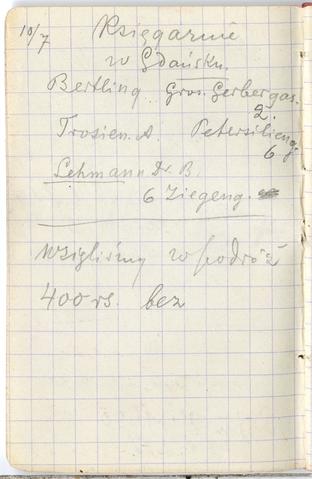 10/7 Księgarnie
w Gdańsku.
Bertling Gros. Gerbergas.
2.
Trosien. A. Petersilieng.
6.
Lehmann Dr. B.
6 Ziegeng.
wzięliśmy w podróż
400 rs. bez